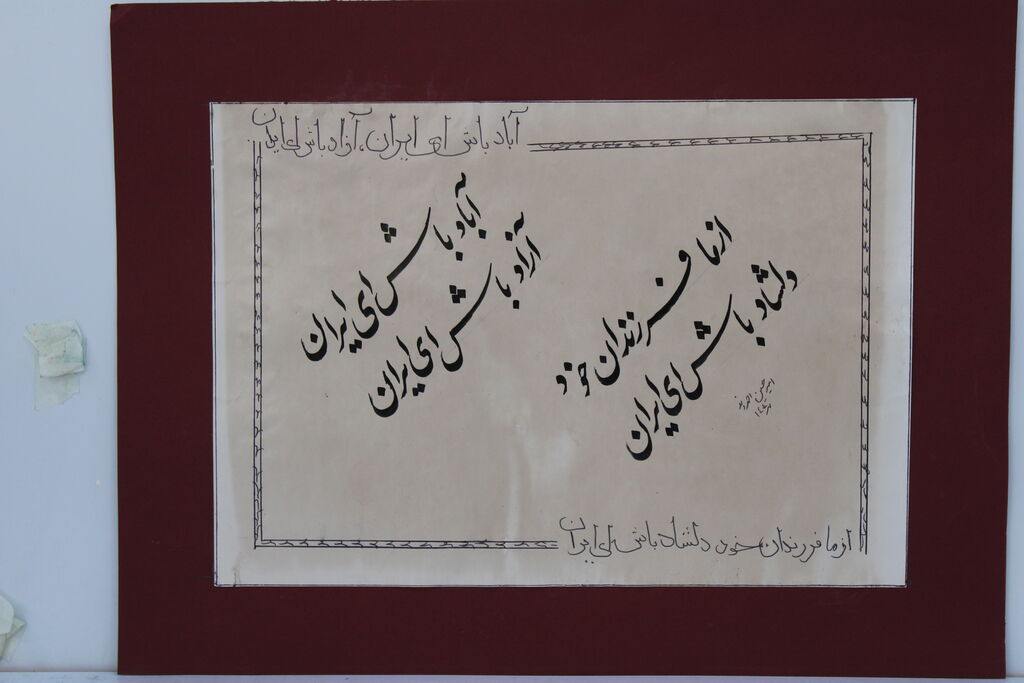 آباد باش ای ایران، آزاد باش ای ایران
آباد باش ای ایران
آزاد باش ای ایران
از ما فرزندان خود
دلشاد باش ای ایران
از ما فرزندان خود دلشاد باش ای ایران